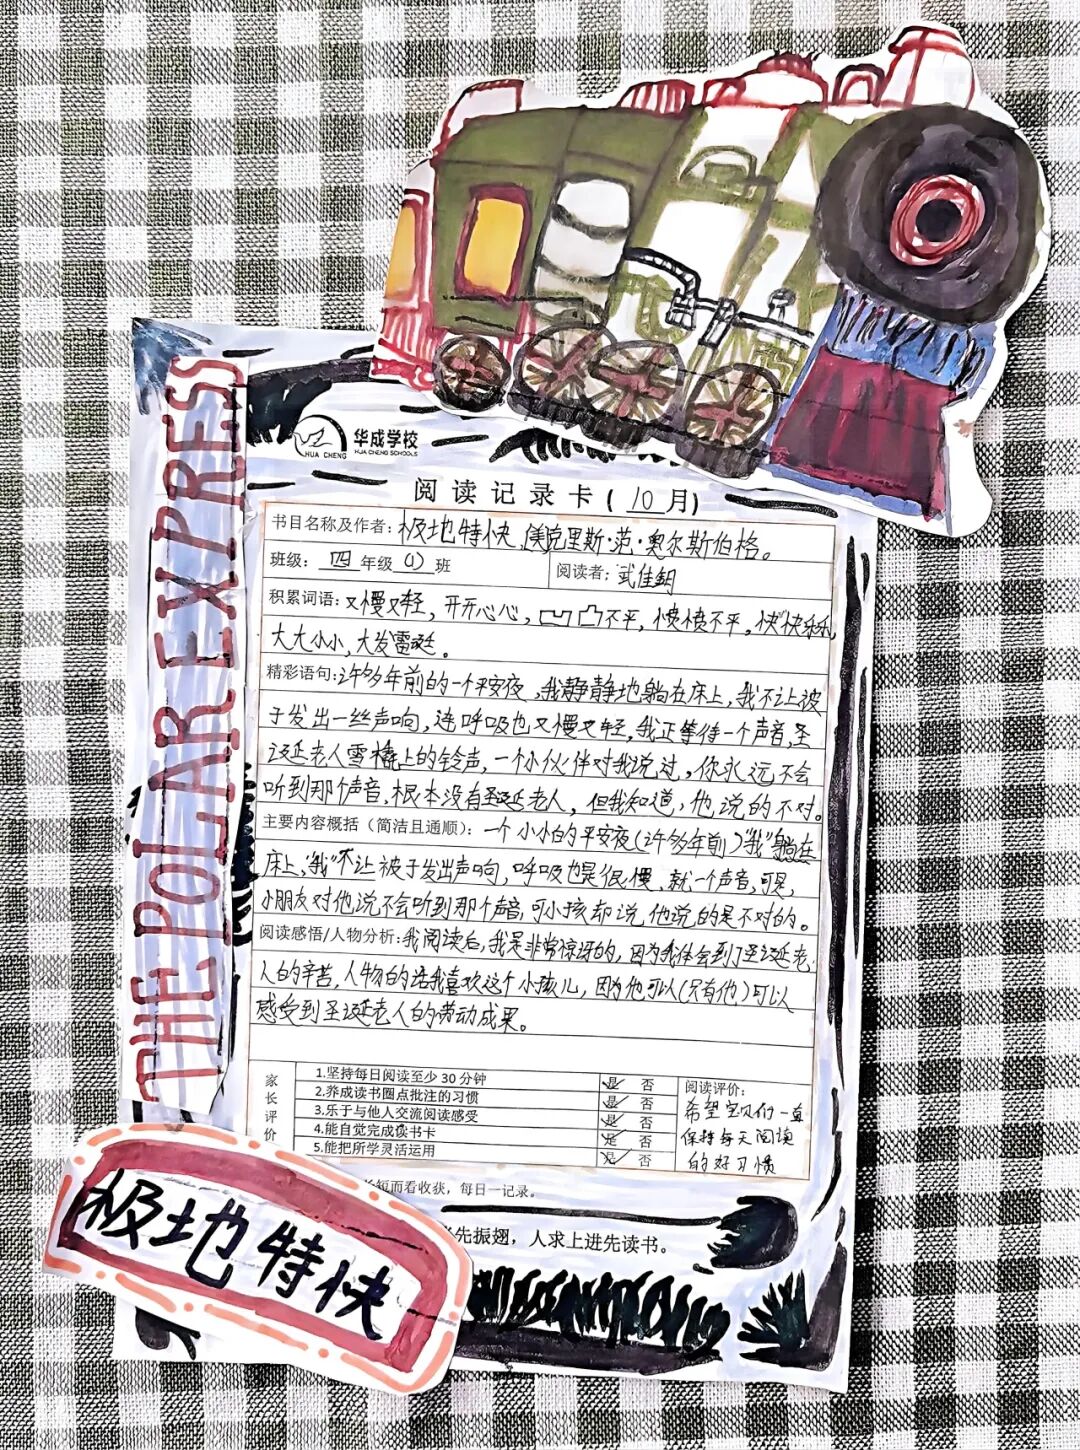 THE POLAR EXPRESS
华成学校
HUA CHENG
HUA CHENG SCHOOLS
阅读记录卡(10月)
书目名称及作者：极地特快 (美)克里斯·范·奥尔斯伯格。
班级：四年级(1)班 阅读者：武佳
积累词语：又慢又轻，开开心心，凹凸不平，愤愤不平，快快乐乐，
大大小小，大发雷霆。
精彩语句：许多年前的一个平安夜，我静静地躺在床上，我不让被
子发出一丝声响，连呼吸也又慢又轻，我正等待一个声音，圣
诞老人雪橇上的铃声，一个小伙伴对我说过，你永远不会
听到那个声音，根本没有圣诞老人，但我知道，他说的不对。
主要内容概括（简洁且通顺）：一个小小的平安夜(许多年前)“我”躺在
床上，“我”不让被子发出声响，呼吸也是很慢，就一个声音，可是，
小朋友对他说不会听到那个声音，可小孩却说他说的是不对的。
阅读感悟/人物分析：我阅读后，我是非常惊讶的，因为我体会到了圣诞老
人的辛苦，人物的话我喜欢这个小孩儿，因为他可以(只有他)可以
感受到圣诞老人的劳动成果。
家长评价
1.坚持每日阅读至少30分钟 是 否
2.养成读书圈点批注的习惯 是 否
3.乐于与他人交流阅读感受 是 否
4.能自觉完成读书卡 是 否
5.能把所学灵活运用 是 否
阅读评价：
希望宝贝们一直
保持每天阅读
的好习惯
短而看收获，每日一记录。
先振翅，人求上进先读书。
极地特快